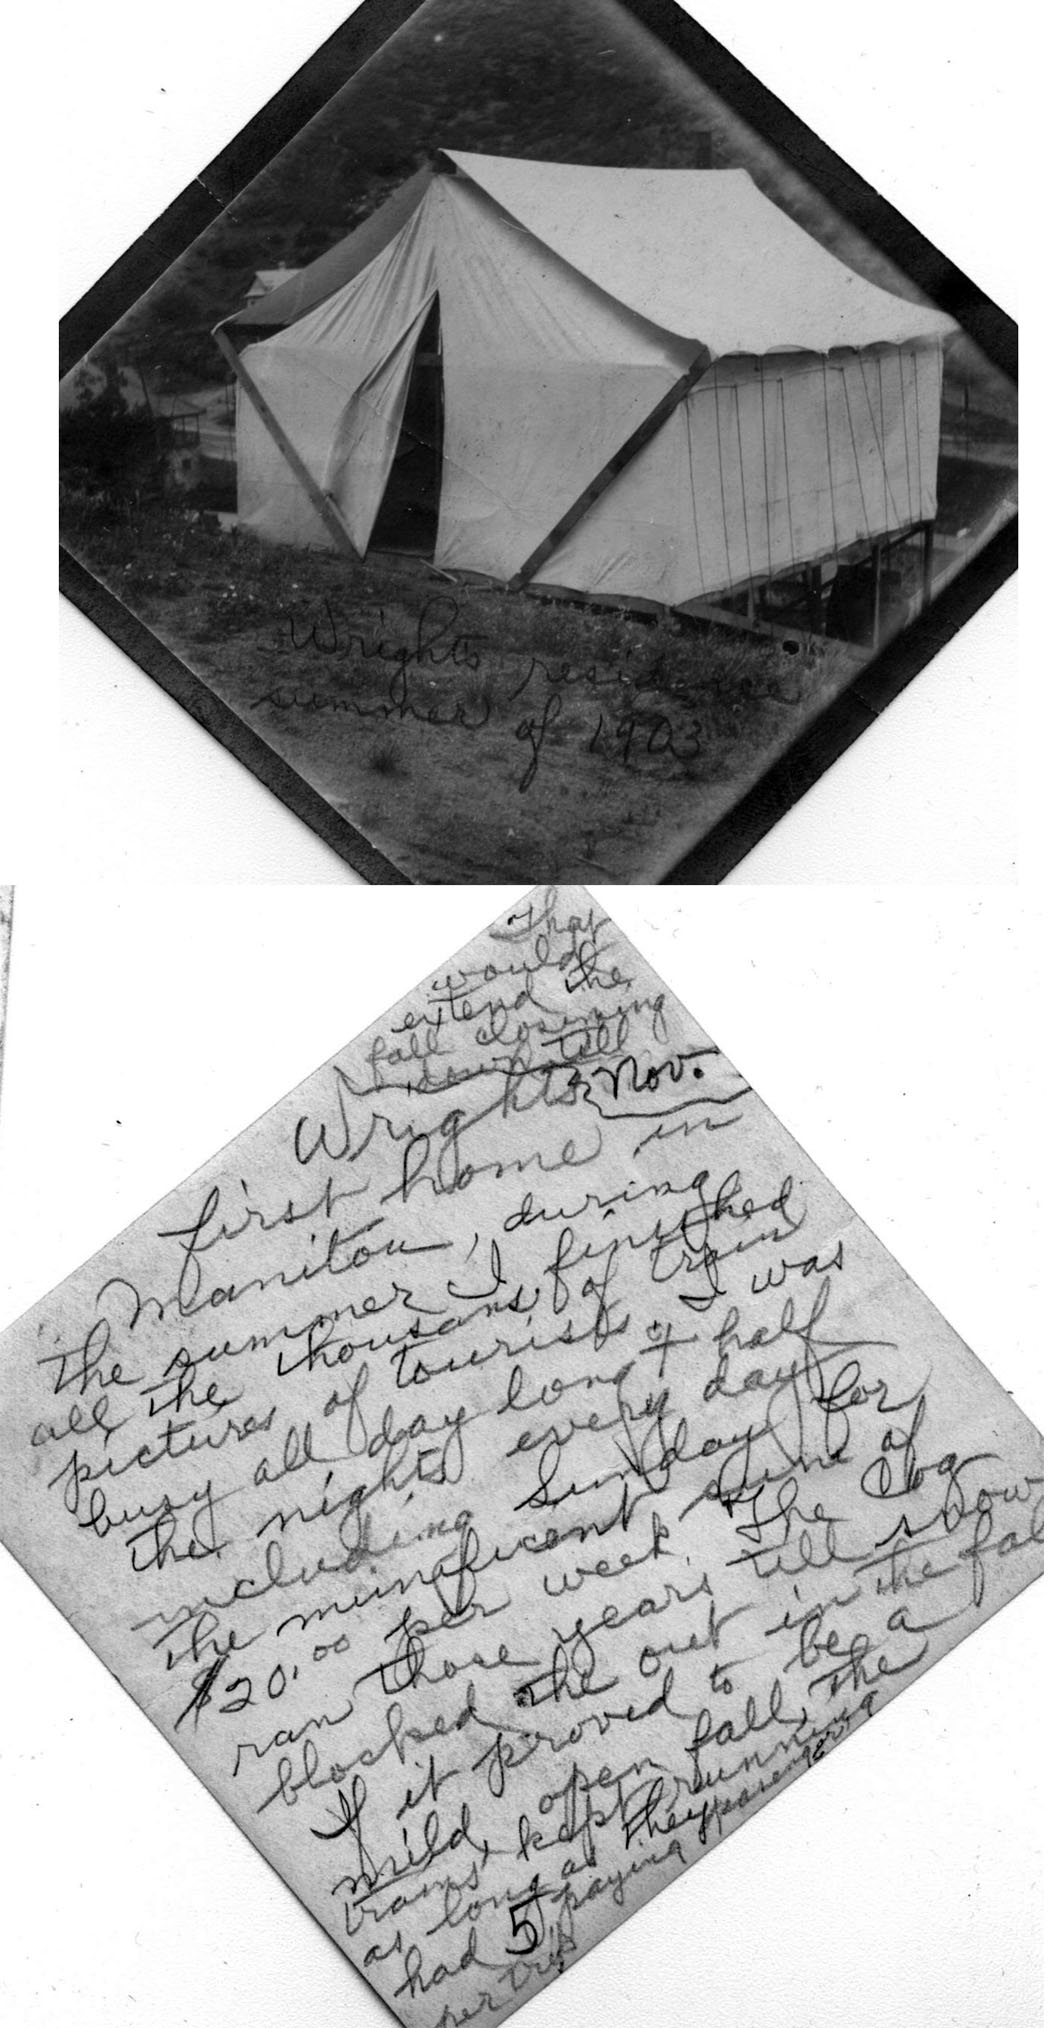 Wrights residence
summer of 1903
That
would
extend the
fall closeing
down till
Nov.
Wrights
first home in
Manitou, during
the summer I finished
all the thousans of train
pictures of tourists. I was
busy all day long & half
the nights every day
including Sunday for
the munificent sum of
$20.00 per week. The Cog
ran those years till snow
blocked the out in the fall
If it proved to be a
mild, open fall, the
trains kept running
as long as they
had 5 paying passengers
per trip